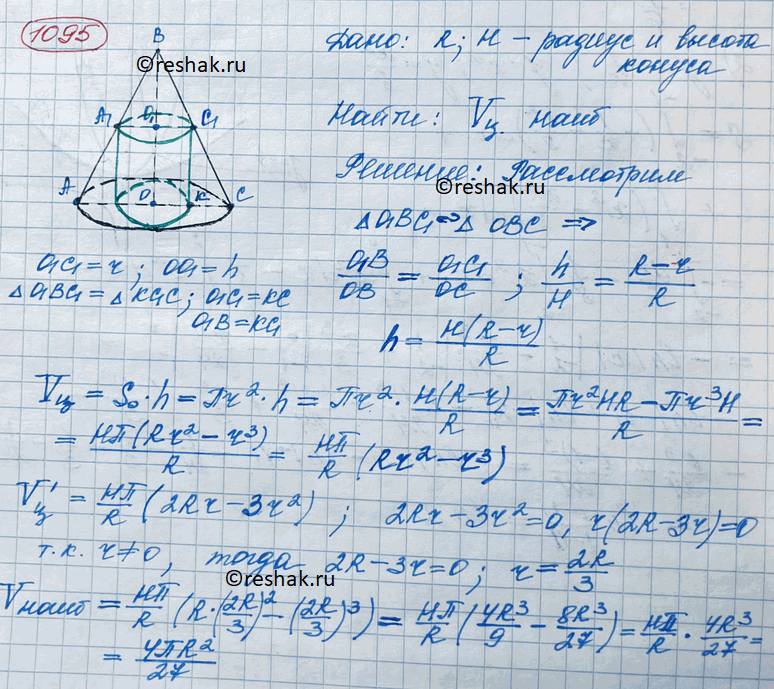 1095
B
©reshak.ru
A₁ O₁ C₁
A O K C
Дано: R; H – радиус и высота
конуса
©reshak.ru
Найти: Vц. наиб
Решение: Рассмотрим
©reshak.ru
△O₁BC₁ ∾ △OBC ⇒
O₁C₁ = r; OO₁ = h
△O₁BC₁ = △KC₁C; O₁C₁ = KC
O₁B = KC₁
O₁B/OB = O₁C₁/OC; h/H = (R–r)/R
h = H(R–r)/R
Vц = S₀·h = Пr²·h = Пr²·H(R–r)/R = (Пr²HR – Пr³H)/R =
= HП(Rr² – r³)/R = HП/R (Rr² – r³)
Vц' = HП/R (2Rr – 3r²); 2Rr – 3r² = 0, r(2R – 3r) = 0
т.к. r ≠ 0, тогда 2R – 3r = 0; r = 2R/3
©reshak.ru
Vнаиб = HП/R (R·(2R/3)² – (2R/3)³) = HП/R (4R³/9 – 8R³/27) = HП/R · 4R³/27 =
= 4ПR²/27